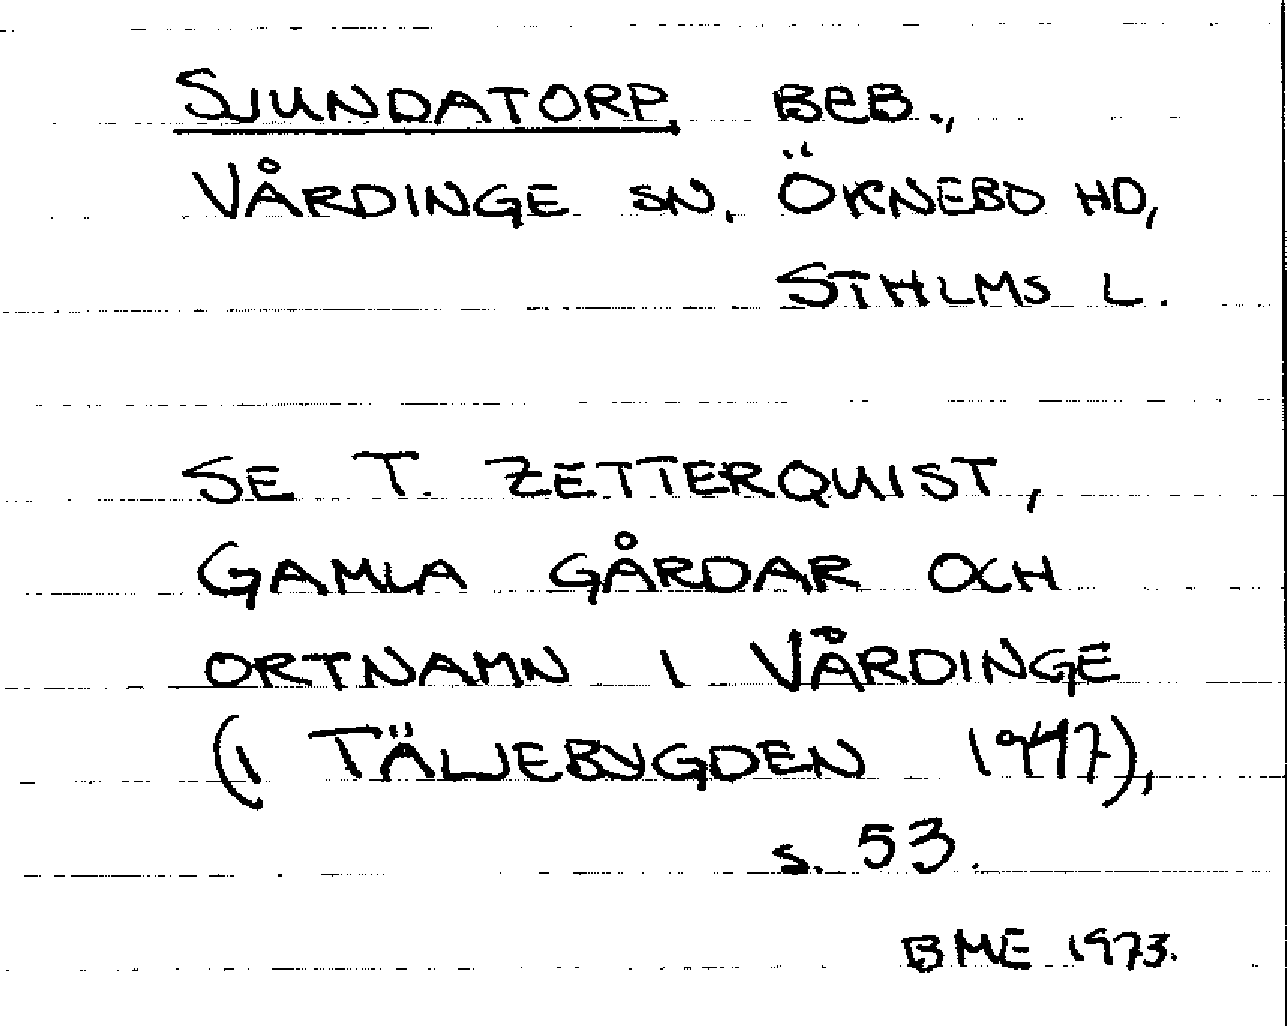 SJUNDATORP, BEB.,
VÅRDINGE SN, ÖKNEBO HD,
STHLMS L.
SE T. ZETTERQUIST,
GAMLA GÅRDAR OCH
ORTNAMN I VÅRDINGE
(I TÄLJEBYGDEN 1947),
s. 53.
BME 1973.